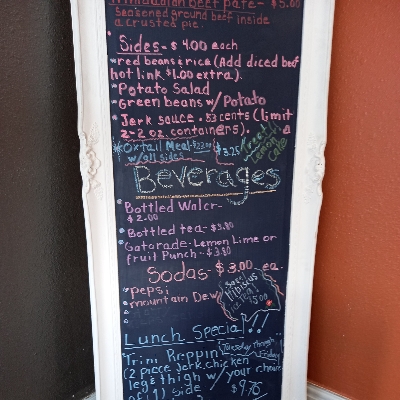 Trinidadian beef pate- $5.00
Seasoned ground beef inside
a crusted pie.
Sides- $4.00 each
*red beans & rice (Add diced beef
hot link $1.00 extra).
*Potato Salad
*Green beans w/ Potato
*Jerk sauce. 83 cents (limit
2-2 oz. containers).
*Oxtail Meal
w/ all sides
$3.25
Lemon
Cake
Beverages
*Bottled Water-
$2.00
*Bottled tea-
*Gatorade-Lemon Lime or
fruit Punch-
Sodas- $3.00 ea.
*pepsi
*mountain Dew
Hibiscus
Lunch Special!!
Trini Drippin
(Tuesday through
Friday)
(2 piece Jerk chicken
leg & thigh w/ your choice
of (1) side
$9.75